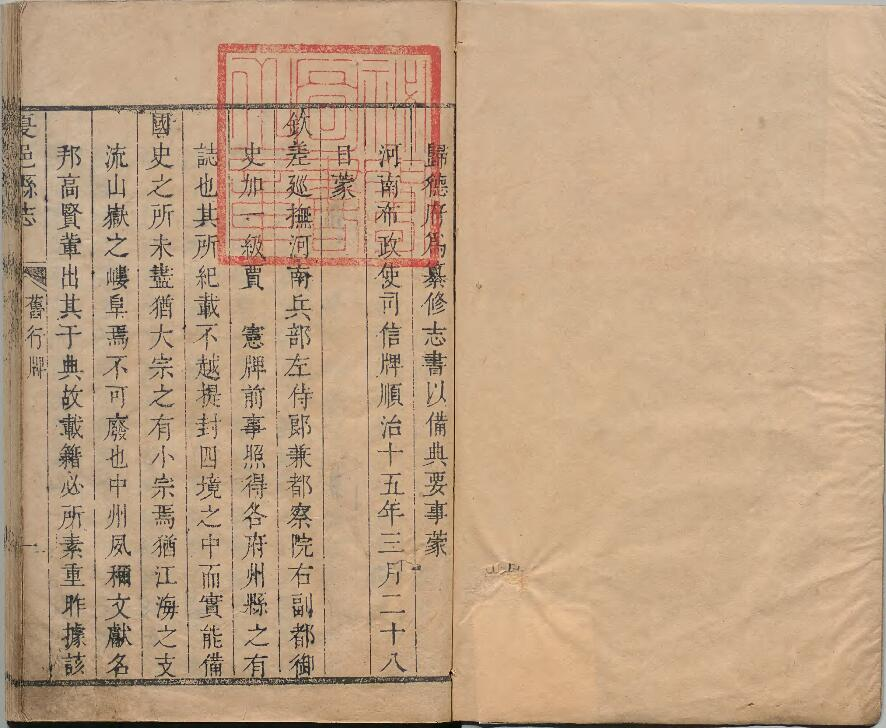 歸德府爲纂修志書以備典要事蒙
河南布政使司信牌順治十五年三月二十八
日蒙
欽差廵撫河南兵部左侍郎兼都察院右副都御
史加一級賈　憲牌前事照得各府州縣之有
誌也其所紀載不越提封四境之中而實能備
國史之所未盡猶大宗之有小宗焉猶江海之支
流山嶽之嶁阜焉不可廢也中州夙稱文獻名
邦高賢輩出其于典故載籍必所素重昨據該
夏邑縣志
舊行牌
一